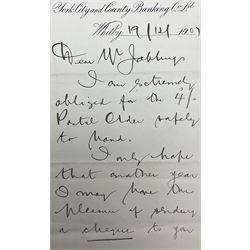 York City and County Banking Co Ltd
Whitby 19/12/1907
Dear Mr Jobbings
I am extremely
obliged for the 4/-
Postal Order safely
to hand.
I only hope
that another year
I may have the
pleasure of sending
a cheque to you